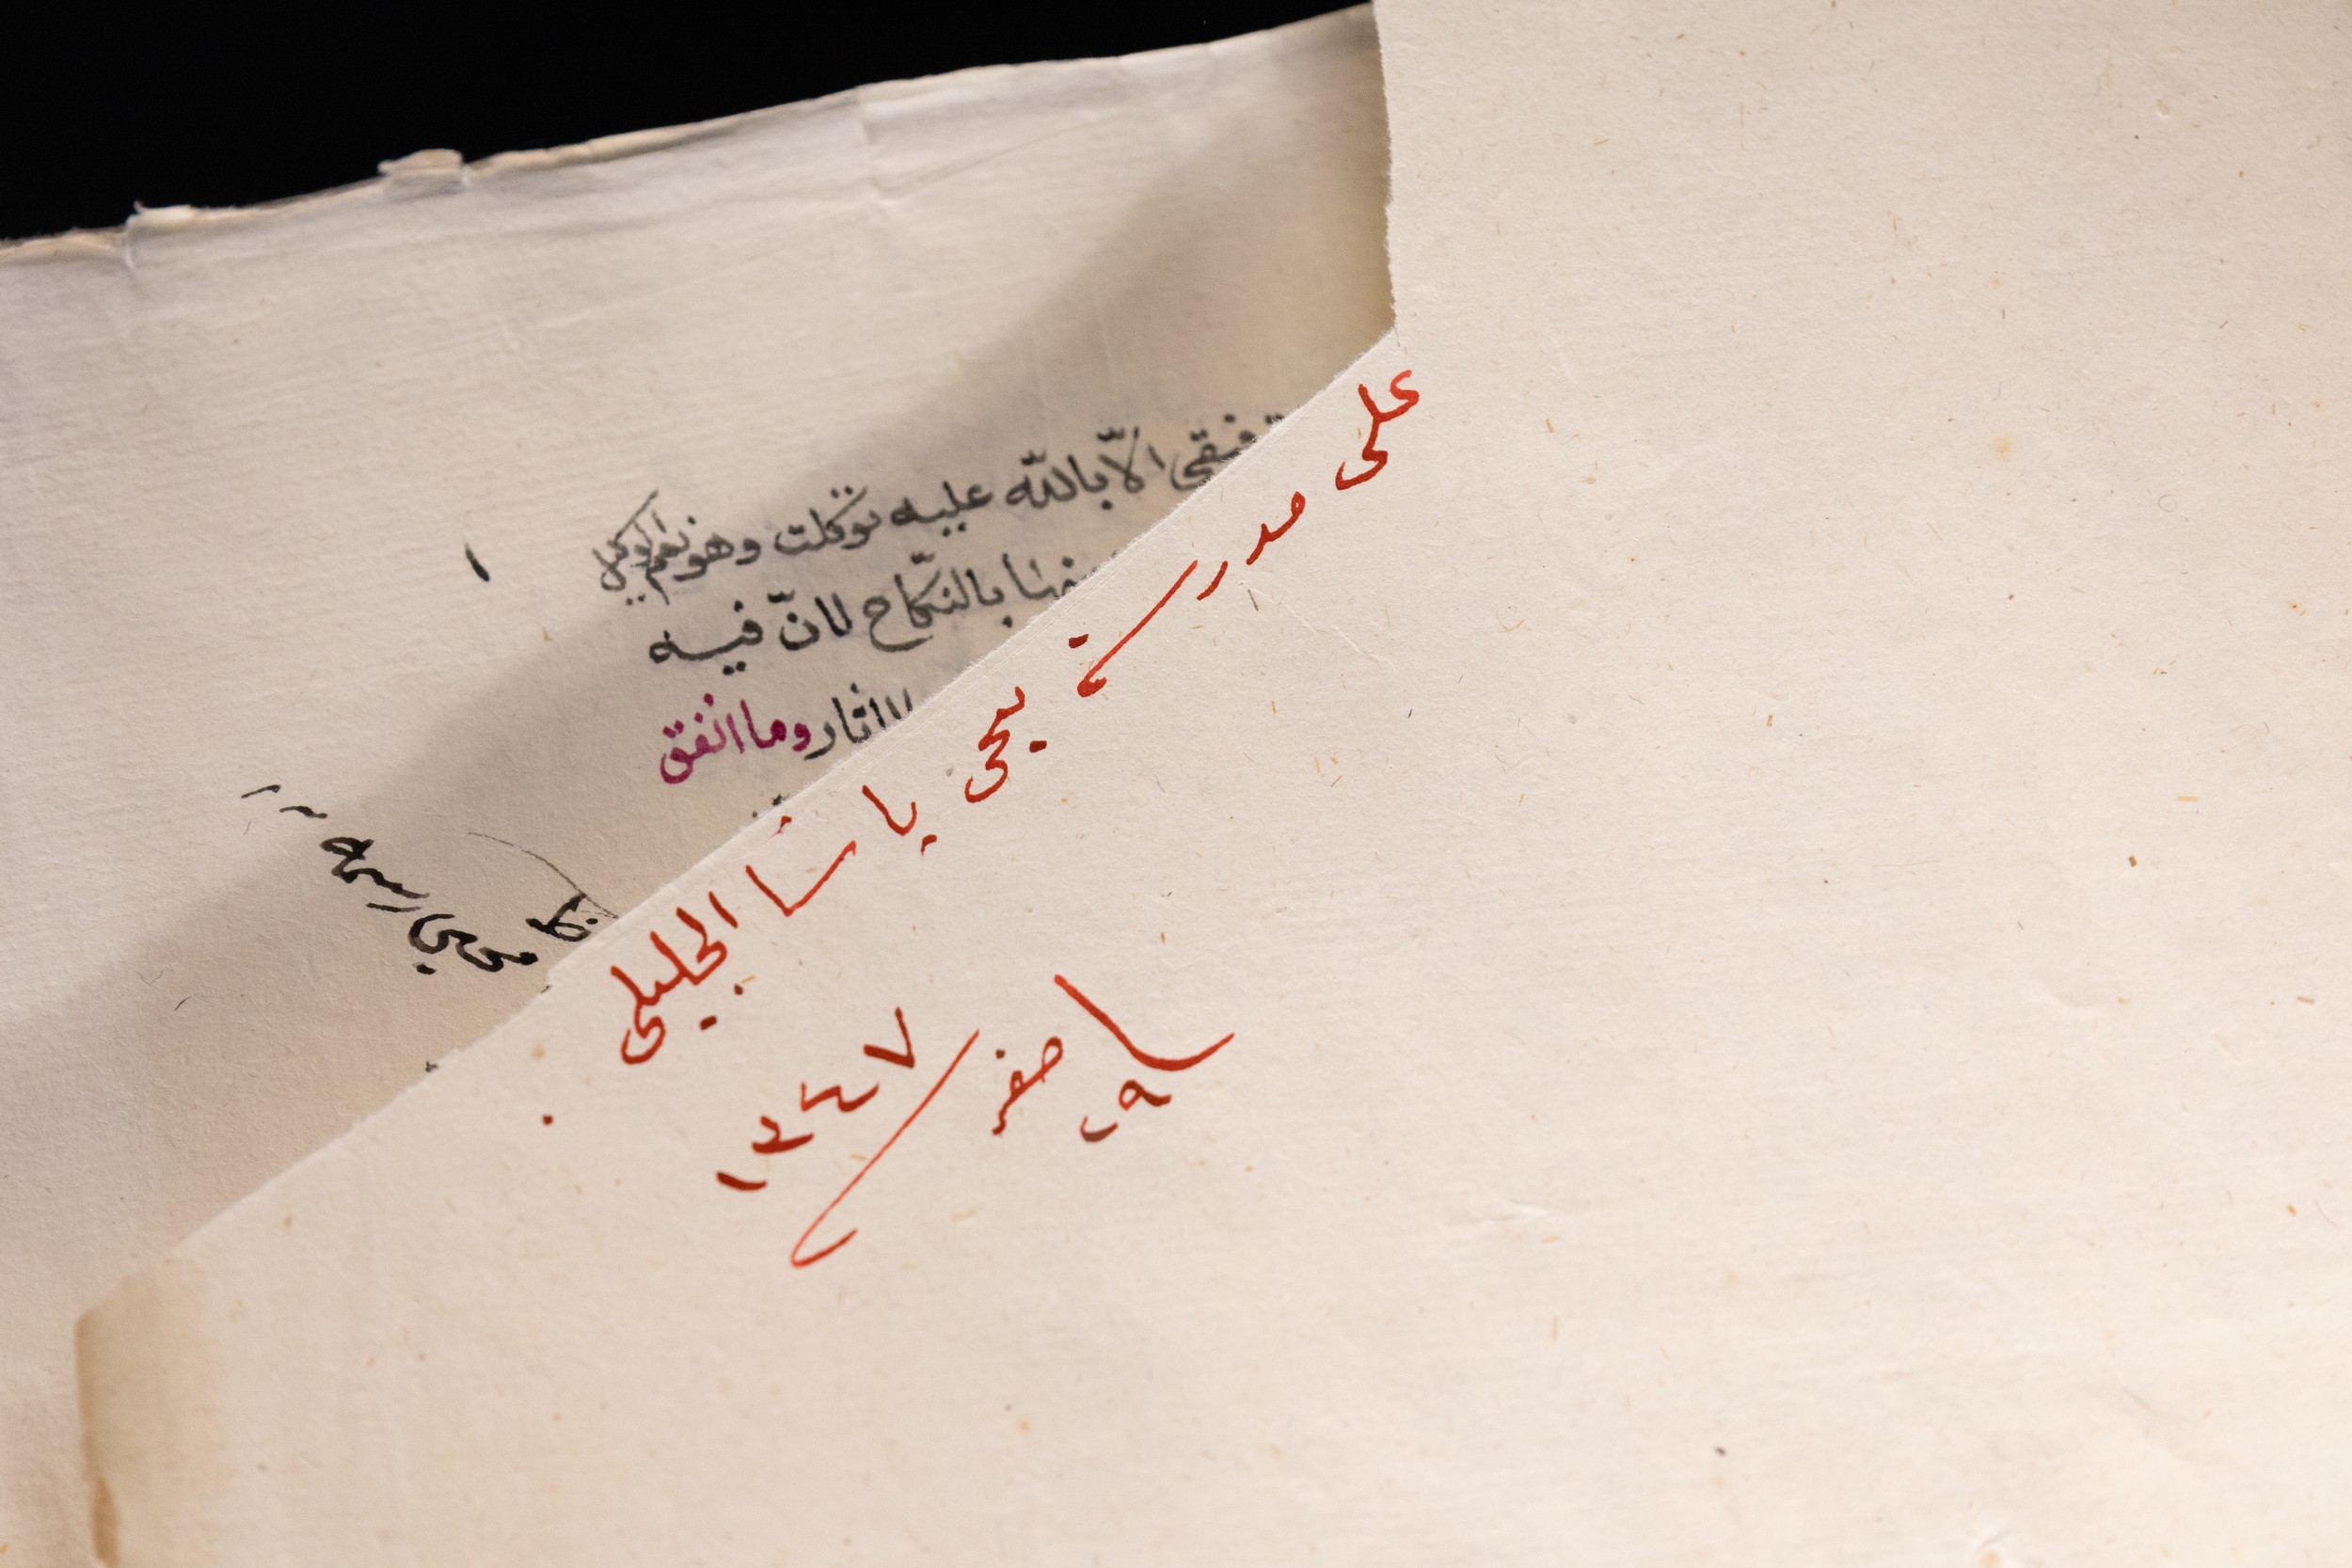 الا بالله عليه توكلت وهو نعم الوكيل
بالنكاح لان فيه
الاثار وما اتفق
١
على مدرسة يحيى باشا الجليلي
٢٩ صفر ١٣٤٧